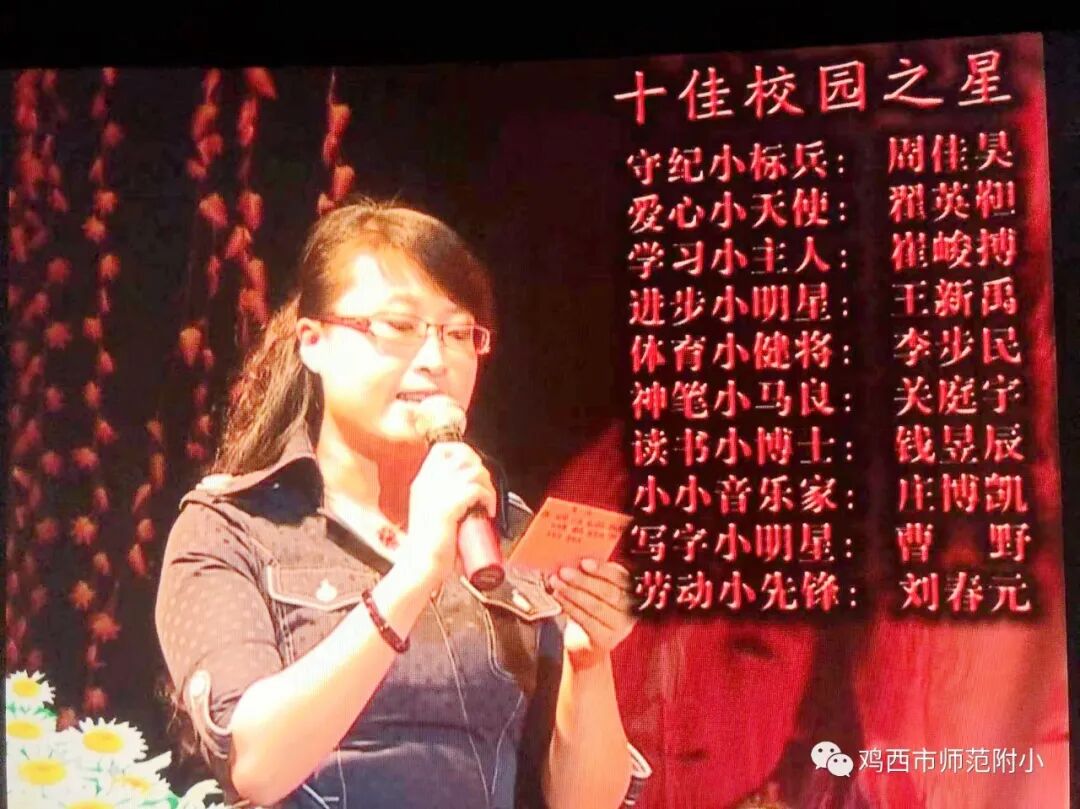 十佳校园之星
守纪小标兵： 周佳昊
爱心小天使： 翟英
学习小主人： 崔峻搏
进步小明星： 王新禹
体育小健将： 李步民
神笔小马良： 关庭宇
读书小博士： 钱昱辰
小小音乐家： 庄博凯
写字小明星： 曹 野
劳动小先锋： 刘春元
鸡西市师范附小